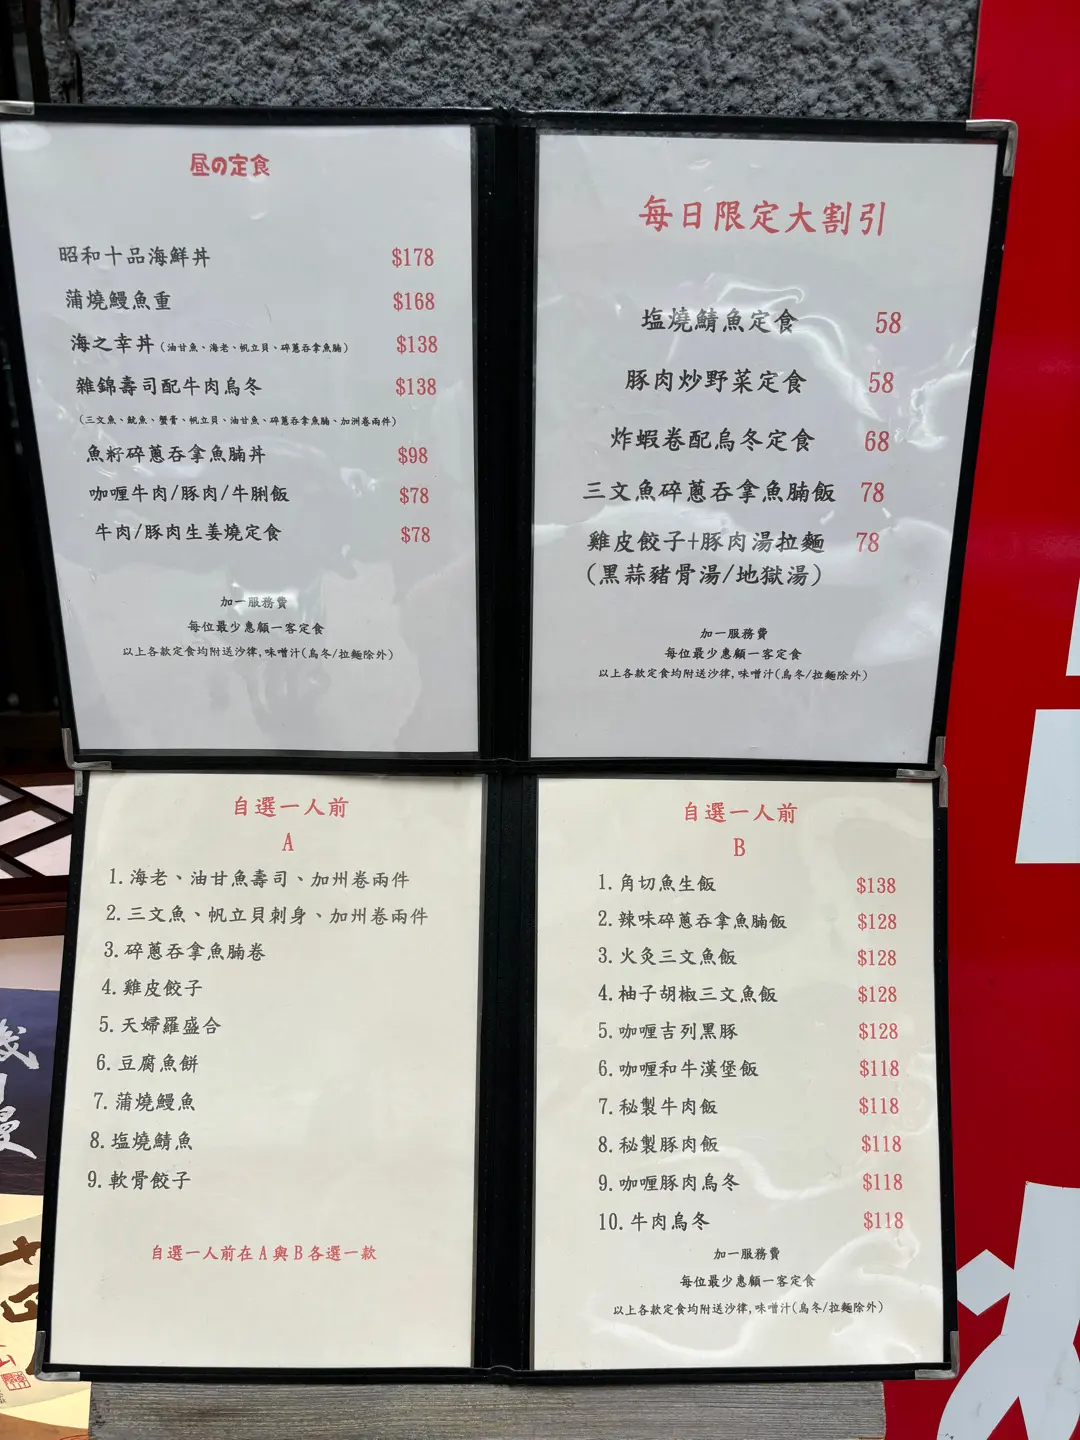 昼の定食
昭和十品海鮮丼 $178
蒲燒鰻魚重 $168
海之幸丼(油甘魚、海老、帆立貝、碎蔥吞拿魚腩) $138
雜錦壽司配牛肉烏冬 $138
(三文魚、魷魚、蟹膏、帆立貝、油甘魚、碎蔥吞拿魚腩、加洲卷兩件)
魚籽碎蔥吞拿魚腩丼 $98
咖喱牛肉/豚肉/牛脷飯 $78
牛肉/豚肉生姜燒定食 $78
加一服務費
每位最少惠顧一客定食
以上各款定食均附送沙律,味噌汁(烏冬/拉麵除外)
每日限定大割引
塩燒鯖魚定食 58
豚肉炒野菜定食 58
炸蝦卷配烏冬定食 68
三文魚碎蔥吞拿魚腩飯 78
雞皮餃子+豚肉湯拉麵 78
(黑蒜豬骨湯/地獄湯)
加一服務費
每位最少惠顧一客定食
以上各款定食均附送沙律,味噌汁(烏冬/拉麵除外)
自選一人前
A
1.海老、油甘魚壽司、加州卷兩件
2.三文魚、帆立貝刺身、加州卷兩件
3.碎蔥吞拿魚腩卷
4.雞皮餃子
5.天婦羅盛合
6.豆腐魚餅
7.蒲燒鰻魚
8.塩燒鯖魚
9.軟骨餃子
自選一人前在A與B各選一款
自選一人前
B
1.角切魚生飯 $138
2.辣味碎蔥吞拿魚腩飯 $128
3.火灸三文魚飯 $128
4.柚子胡椒三文魚飯 $128
5.咖喱吉列黑豚 $128
6.咖喱和牛漢堡飯 $118
7.秘製牛肉飯 $118
8.秘製豚肉飯 $118
9.咖喱豚肉烏冬 $118
10.牛肉烏冬 $118
加一服務費
每位最少惠顧一客定食
以上各款定食均附送沙律,味噌汁(烏冬/拉麵除外)